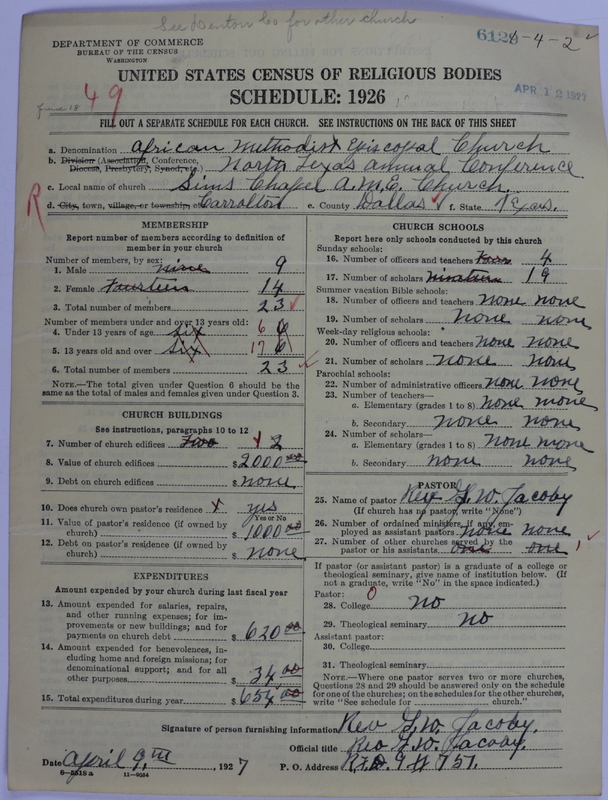 See Denton Co for other church
DEPARTMENT OF COMMERCE
BUREAU OF THE CENSUS
WASHINGTON
6-4-2
UNITED STATES CENSUS OF RELIGIOUS BODIES
SCHEDULE: 1926
APR 12 1927
49
FILL OUT A SEPARATE SCHEDULE FOR EACH CHURCH. SEE INSTRUCTIONS ON THE BACK OF THIS SHEET
a. Denomination African Methodist Episcopal Church
b. Division (Association, Conference, Diocese, Presbytery, Synod, etc.) North Texas Annual Conference
c. Local name of church Sims Chapel A.M.E. Church.
R
d. City, town, village, or township, of Carrolton e. County Dallas f. State Texas.
MEMBERSHIP
Report number of members according to definition of member in your church
Number of members, by sex:
1. Male nine 9
2. Female Fourteen 14
3. Total number of members 23
Number of members under and over 13 years old:
4. Under 13 years of age six 6 6
5. 13 years old and over six 17 6
6. Total number of members 23
NOTE.—The total given under Question 6 should be the same as the total of males and females given under Question 3.
CHURCH BUILDINGS
See instructions, paragraphs 10 to 12
7. Number of church edifices Two 2
8. Value of church edifices $2000 00
9. Debt on church edifices $ none
10. Does church own pastor's residence yes
Yes or No
11. Value of pastor's residence (if owned by church) $1000 00
12. Debt on pastor's residence (if owned by church) $ none
EXPENDITURES
Amount expended by your church during last fiscal year
13. Amount expended for salaries, repairs, and other running expenses; for improvements or new buildings; and for payments on church debt $620 00
14. Amount expended for benevolences, including home and foreign missions; for denominational support; and for all other purposes $34.00
15. Total expenditures during year $654 00
CHURCH SCHOOLS
Report here only schools conducted by this church
Sunday schools:
16. Number of officers and teachers Four 4
17. Number of scholars nineteen 19
Summer vacation Bible schools:
18. Number of officers and teachers none none
19. Number of scholars none none
Week-day religious schools:
20. Number of officers and teachers none none
21. Number of scholars none none
Parochial schools:
22. Number of administrative officers none none
23. Number of teachers—
a. Elementary (grades 1 to 8) none none
b. Secondary none none
24. Number of scholars—
a. Elementary (grades 1 to 8) none none
b. Secondary none none
PASTOR
25. Name of pastor Rev G. W. Jacoby
(If church has no pastor, write "None")
26. Number of ordained ministers, if any, employed as assistant pastors none none
27. Number of other churches served by the pastor or his assistants one one 1
If pastor (or assistant pastor) is a graduate of a college or theological seminary, give name of institution below. (If not a graduate, write "No" in the space indicated.)
Pastor: 0
28. College No
29. Theological seminary No
Assistant pastor:
30. College
31. Theological seminary
NOTE.—Where one pastor serves two or more churches, Questions 28 and 29 should be answered only on the schedule for one of the churches; on the schedules for the other churches, write "See schedule for church."
Signature of person furnishing information Rev G. W. Jacoby.
Official title Rev G. W. Jacoby.
Date April 9th, 1927 P. O. Address Rt. 9 # 757.
8—5518a 11—9054